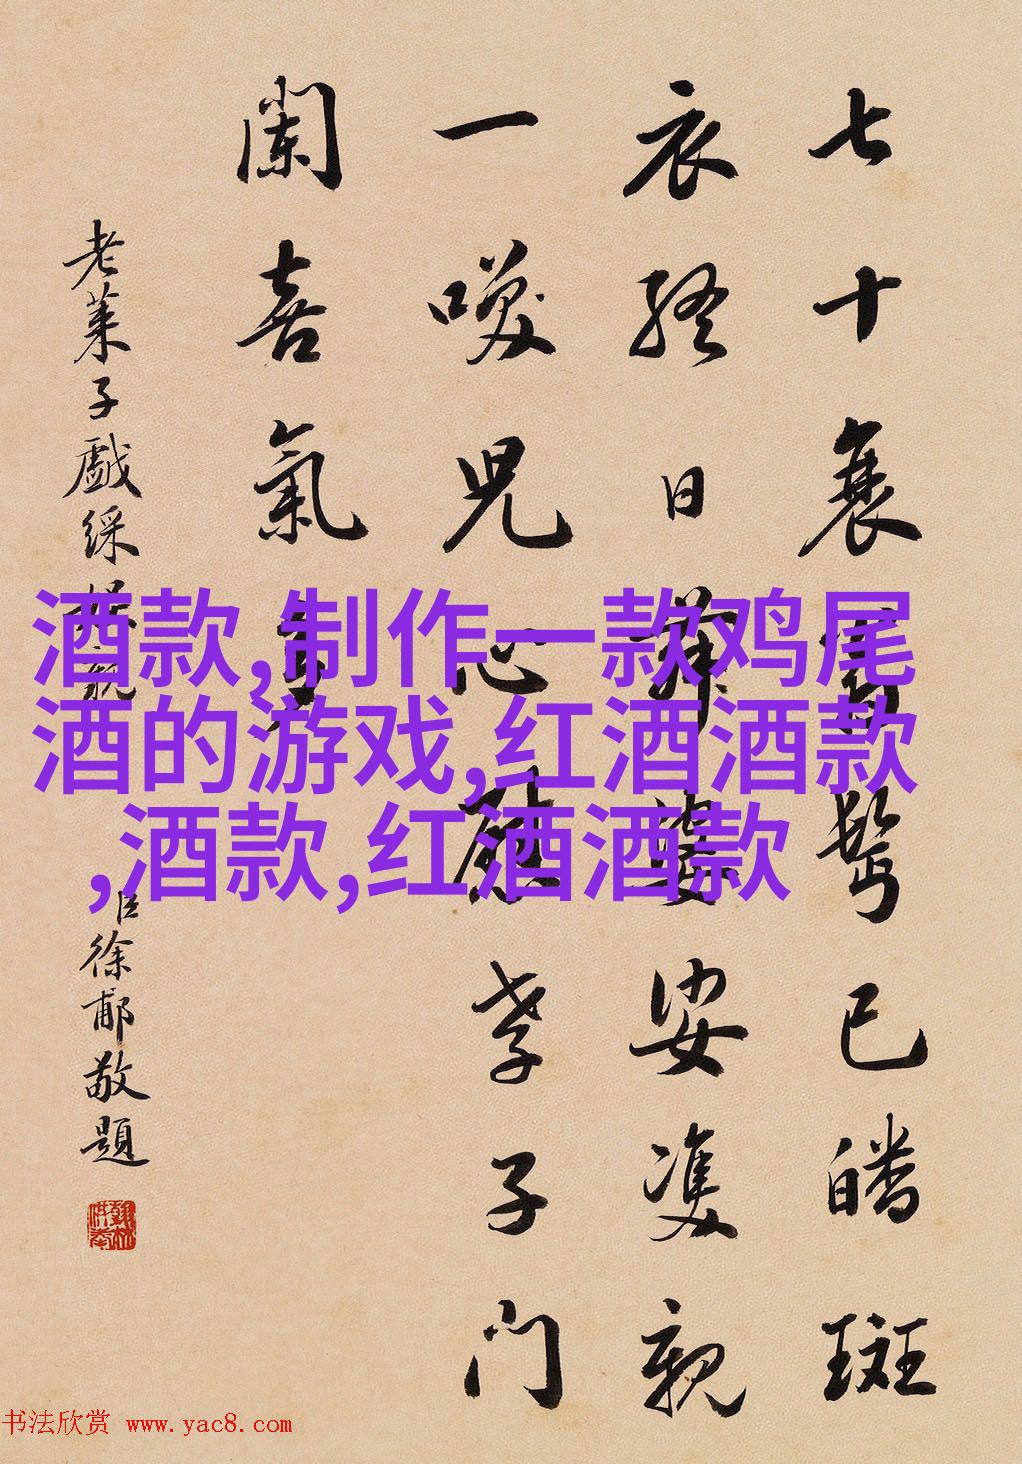 七十衰鬢已皤斑
衣終日舞婆娑雙親
一咲兒心慰孝子門
闌喜氣多
老萊子戲綵娛親
臣徐郙敬題
酒款,制作一款鸡尾
酒的游戏,红酒酒款
,酒款,红酒酒款
书法欣赏 www.yac8.com